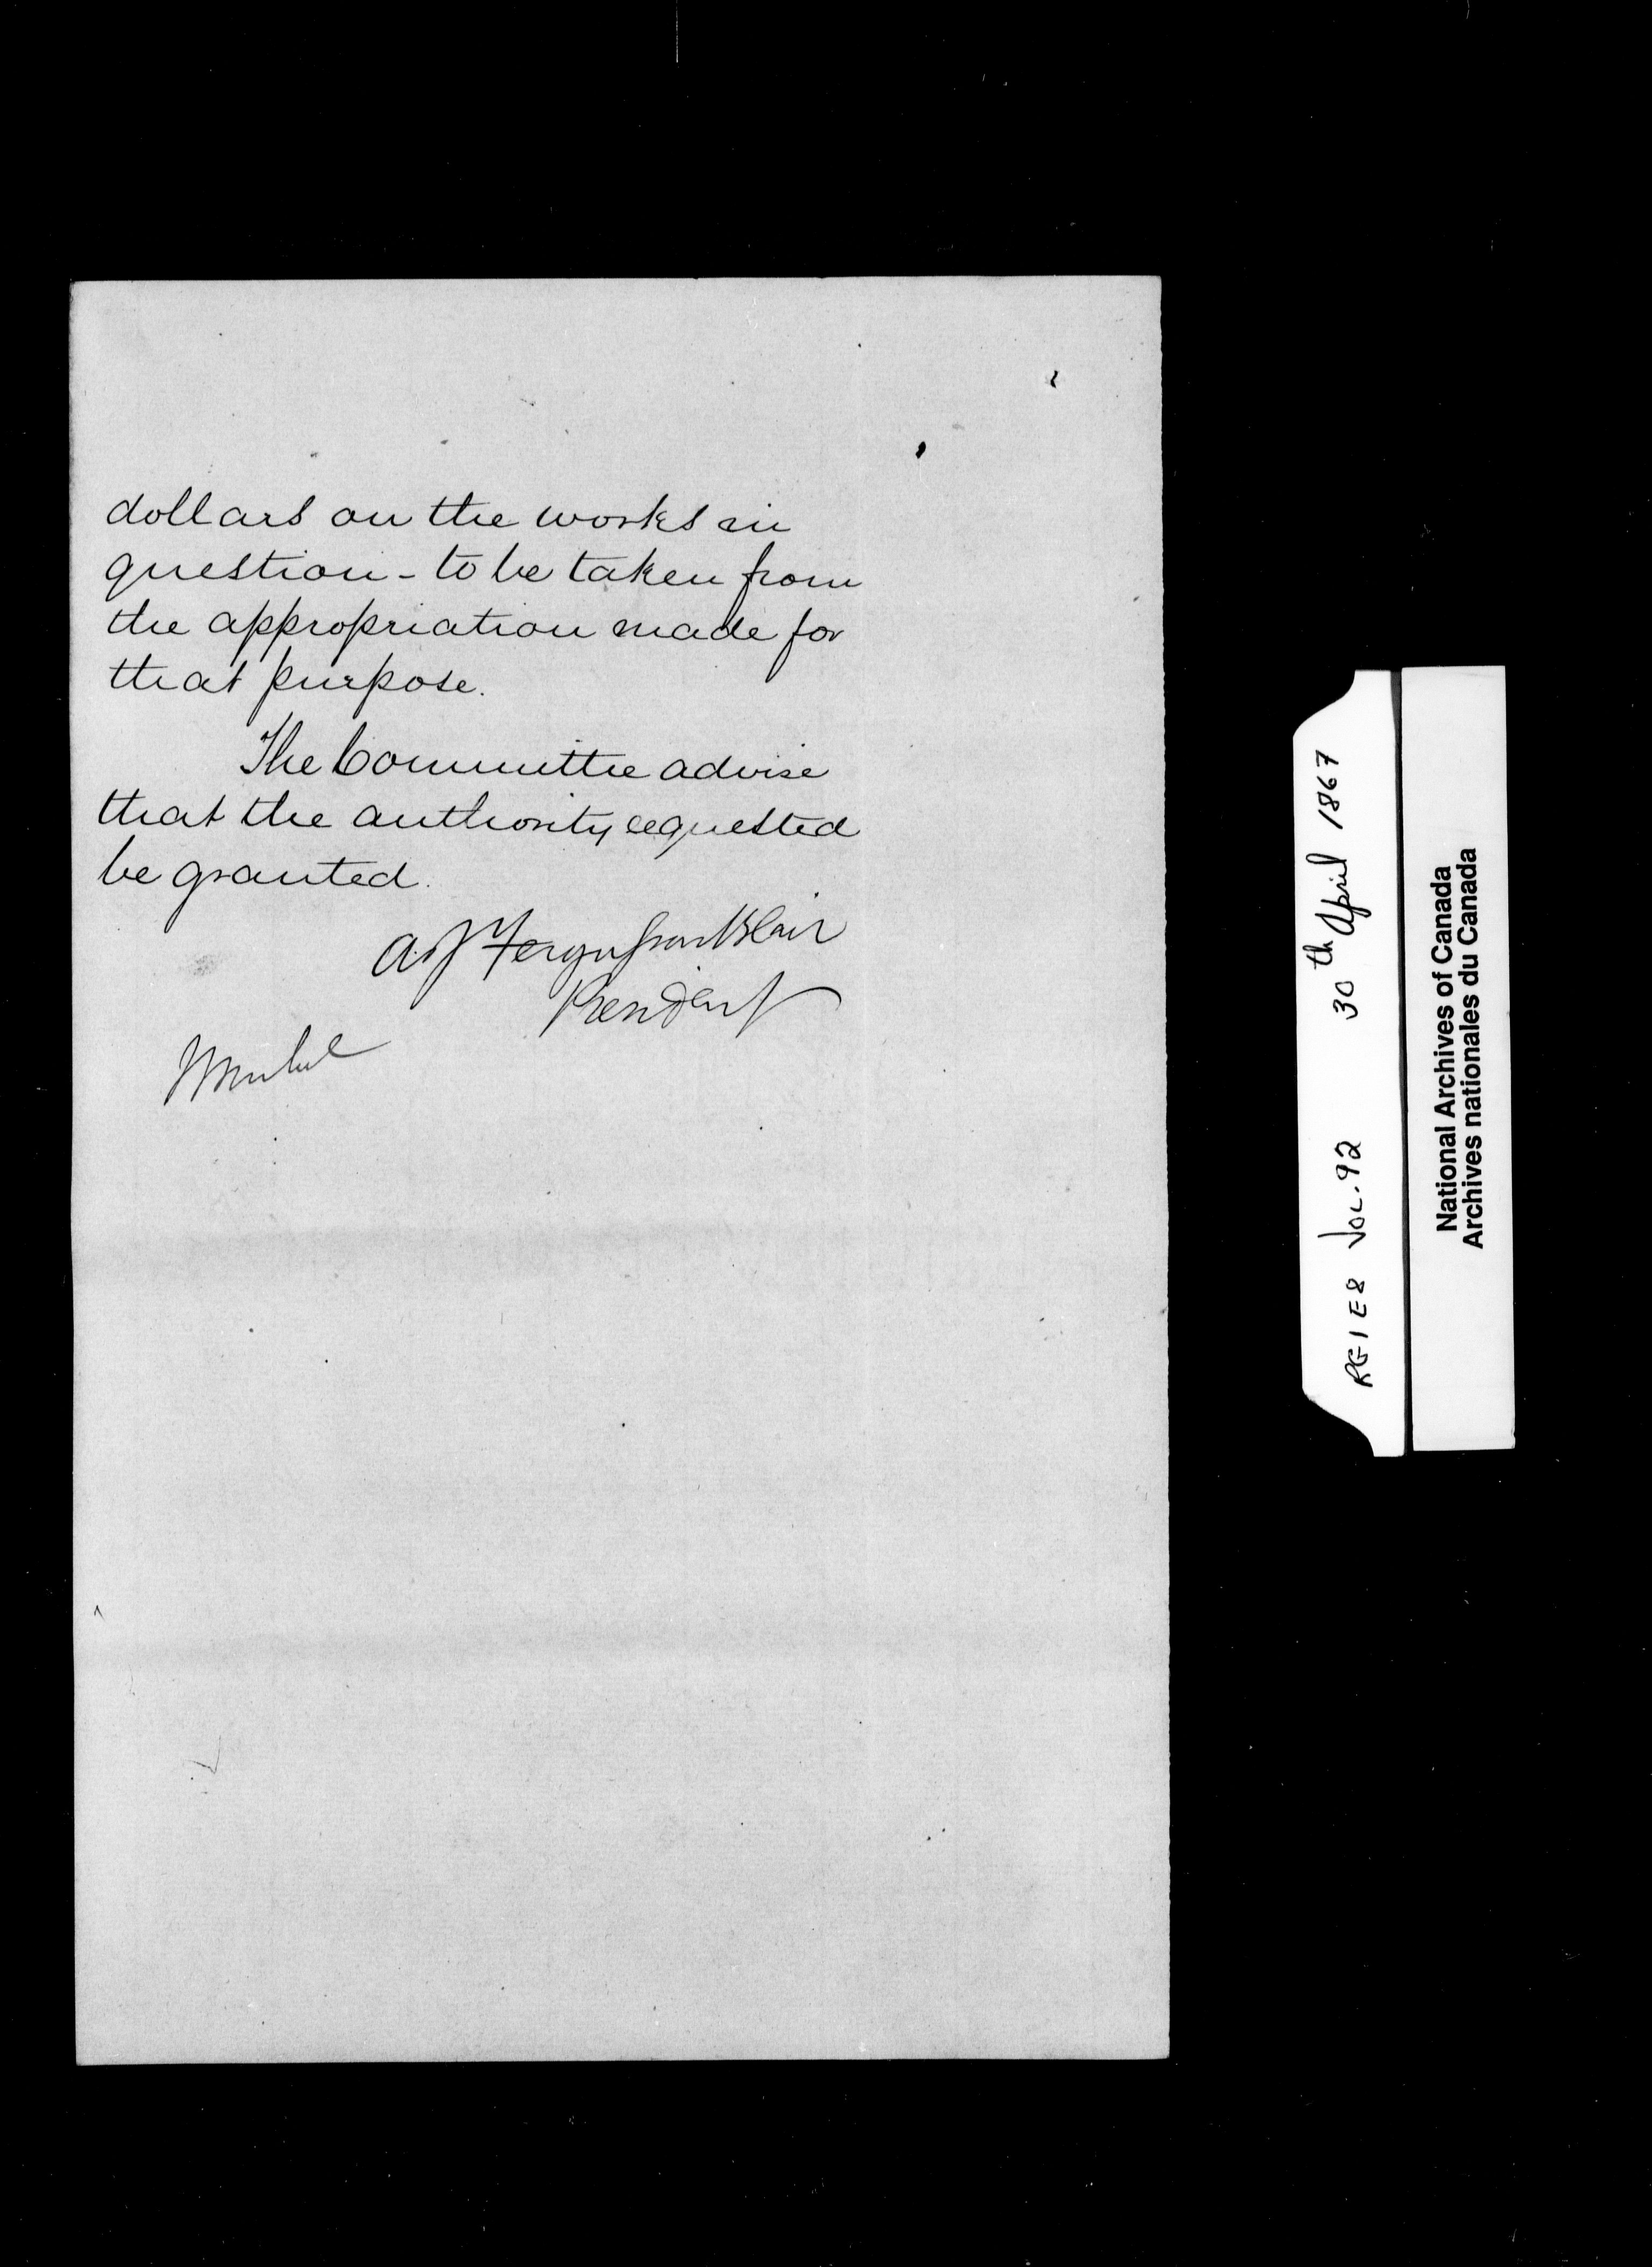 dollars on the works in
question - to be taken from
the appropriation made for
that purpose.
The Committee advise
that the authority requested
be granted.
A. J. Fergusson Blair
President
RG1E8 VOL. 92 30th April 1867
National Archives of Canada
Archives nationales du Canada